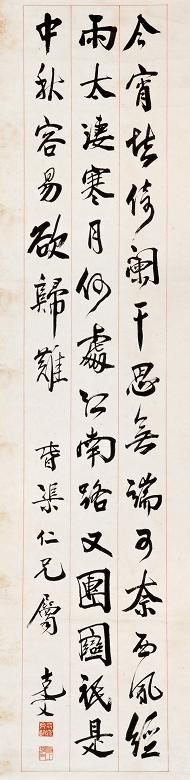 今宵倚闌干思無端可奈西風經
雨太淒寒月何處江南路又團圞祇是
中秋容易欲歸難 渠仁兄屬 克文